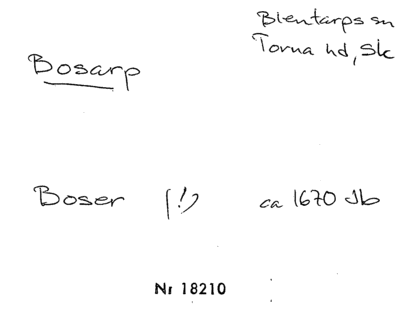 Blentarps sn
Torna hd, Sk
Bosarp
Boser (!) ca 1670 Jb
Nr 18210